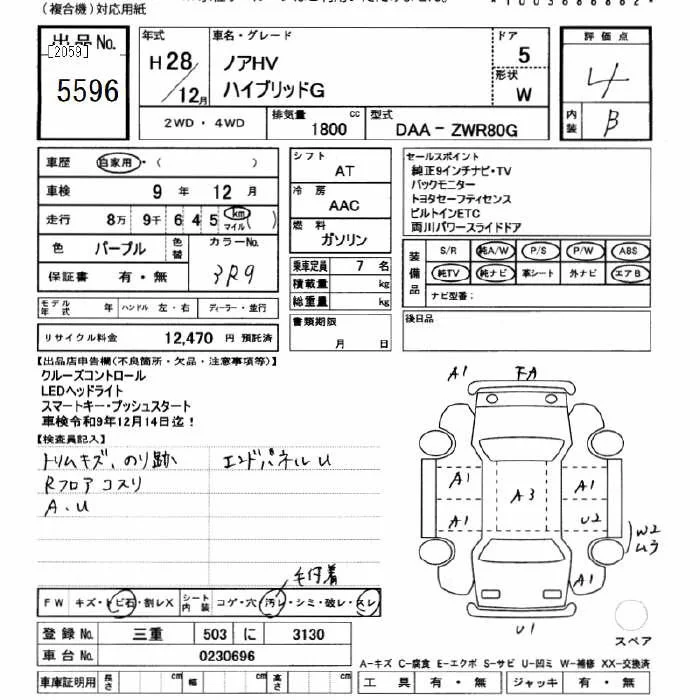 (複合機)対応用紙
出品No.
[2059]
5596
年式
H28/12月
車名・グレード
ノアHV
ハイブリッドG
ドア
5
形状
W
評価点
4
内装
B
2WD・4WD
排気量 1800 cc
型式 DAA-ZWR80G
車歴 自家用・( )
車検 9年 12月
走行 8万 9千 6 4 5 km マイル ( )
色 パープル 色替 カラーNo.
3R9
保証書 有・無
モデル年式 年 ハンドル 左・右 ディーラー・並行
リサイクル料金 12,470 円 預託済
シフト
AT
冷房
AAC
燃料
ガソリン
乗車定員 7 名
積載量 kg
総重量 kg
書類期限
月 日
セールスポイント
純正9インチナビ・TV
バックモニター
トヨタセーフティセンス
ビルトインETC
両川パワースライドドア
装備品
S/R 純A/W P/S P/W ABS
純TV 純ナビ 革シート 外ナビ エアB
ナビ型番:
後日品
【出品店申告欄(不良箇所・欠品・注意事項等)】
クルーズコントロール
LEDヘッドライト
スマートキー・プッシュスタート
車検令和9年12月14日迄!
【検査員記入】
トリムキズ、のり跡 エンドパネルU
Rフロアコスリ
A.U
毛付着
FW キズ・トビ石・割レX シート内装 コゲ・穴・汚レ・シミ・破レ・スレ
登録No. 三重 503 に 3130
車台No. 0230696
車庫証明用 長さ cm 幅 cm 高さ cm
A1 FA
A1 A1
A3
A1 U2
W2
ムラ
A1
U1
スペア
A-キズ C-腐食 E-エクボ S-サビ U-凹ミ W-補修 XX-交換済
工具 有・無 ジャッキ 有・無